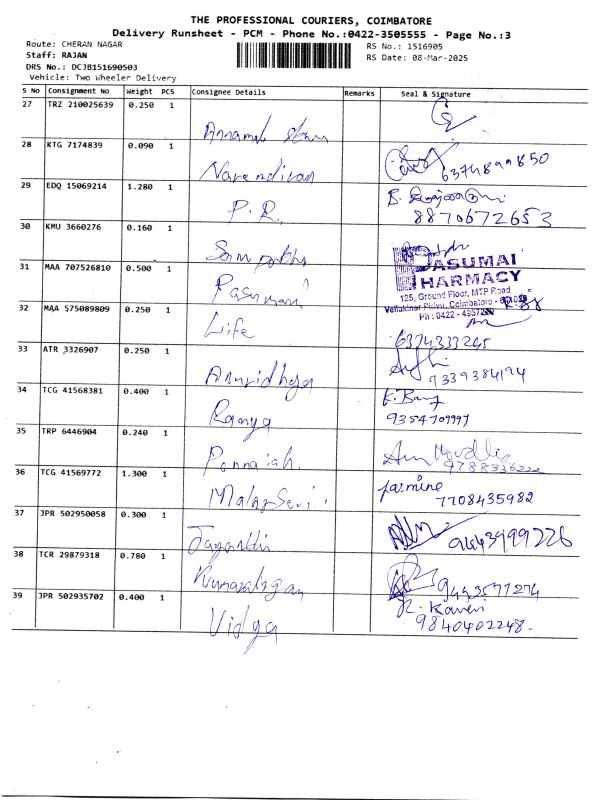 THE PROFESSIONAL COURIERS, COIMBATORE
Delivery Runsheet - PCM - Phone No.:0422-3505555 - Page No.:3
Route: CHERAN NAGAR
RS No.: 1516905
Staff: RAJAN
RS Date: 08-Mar-2025
DRS No.: DCJB151690503
Vehicle: Two Wheeler Delivery
S No Consignment No Weight PCS Consignee Details Remarks Seal & Signature
27 TRZ 210025639 0.250 1
Annamal
28 KTG 7174839 0.090 1
Narendiran 6374899850
29 EDQ 15069214 1.280 1
P.R. B.
8870672653
30 KMU 3660276 0.160 1
31 MAA 707526810 0.500 1
Pasumai
PASUMAI
PHARMACY
125, Ground Floor, MTP Road
Vellakinar Pirivu, Coimbatore - 641029
Ph : 0422 - 4957222
32 MAA 575089809 0.250 1
Life
6374333265
33 ATR 3326907 0.250 1
9339384194
34 TCG 41568381 0.400 1
Ramya
9354709997
35 TRP 6446904 0.240 1
Ponnaiah.
9788336222
36 TCG 41569772 1.300 1
Malar Selvi. Jasmine
7708435982
37 JPR 502950058 0.300 1
Jayanthi 9443999226
38 TCR 29879318 0.780 1
9443577274
39 JPR 502935702 0.400 1
Vidya R. Kaveri
9840402248.